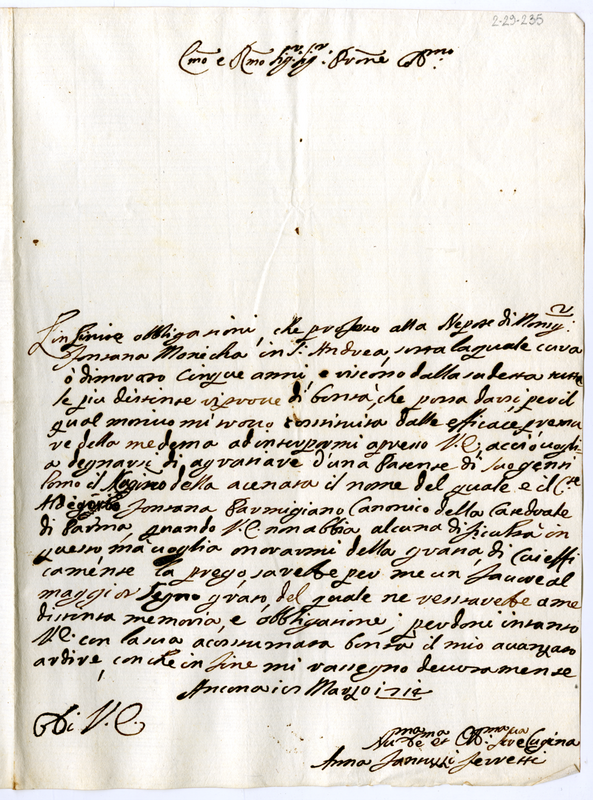 2-29-235
Emo e Rmo Sigr Sigr Prone
L'infinite obbligazioni, che professo alla Nepote di Monsigr
Fontana Monicha in St Andrea, sotto la quale cura
ò dimorato cinque anni, e riscono dalla sudetta tutte
le piu distinte riprove di bontà, che possa darsi, per il
qual motivo mi trovo costituita dalle efficace premu
re della medema ad interpormi apresso V.E. acciò vogli
a degnarsi di agraziare d'una Parente di suo genti
lomo il della acenata il nome del quale e il Cte
Fontana Parmigiano Canonico della Catedrale
di Parma, quando V.E. non abbia alcuna dificultà in
questo ma voglia onorarmi della grazia di cui effi
camente la prego sarebbe per me un favore al
maggior segno grato, del quale ne restarebe a me
distinta memoria, e obbligazione; perdoni intanto
V.E. con la sua acostumata bontà il mio avanzato
ardire, con che in fine mi rassegno devotamente
Ancona Marzo 1714
Di V.E.
Serve Cugina
Anna Ferretti